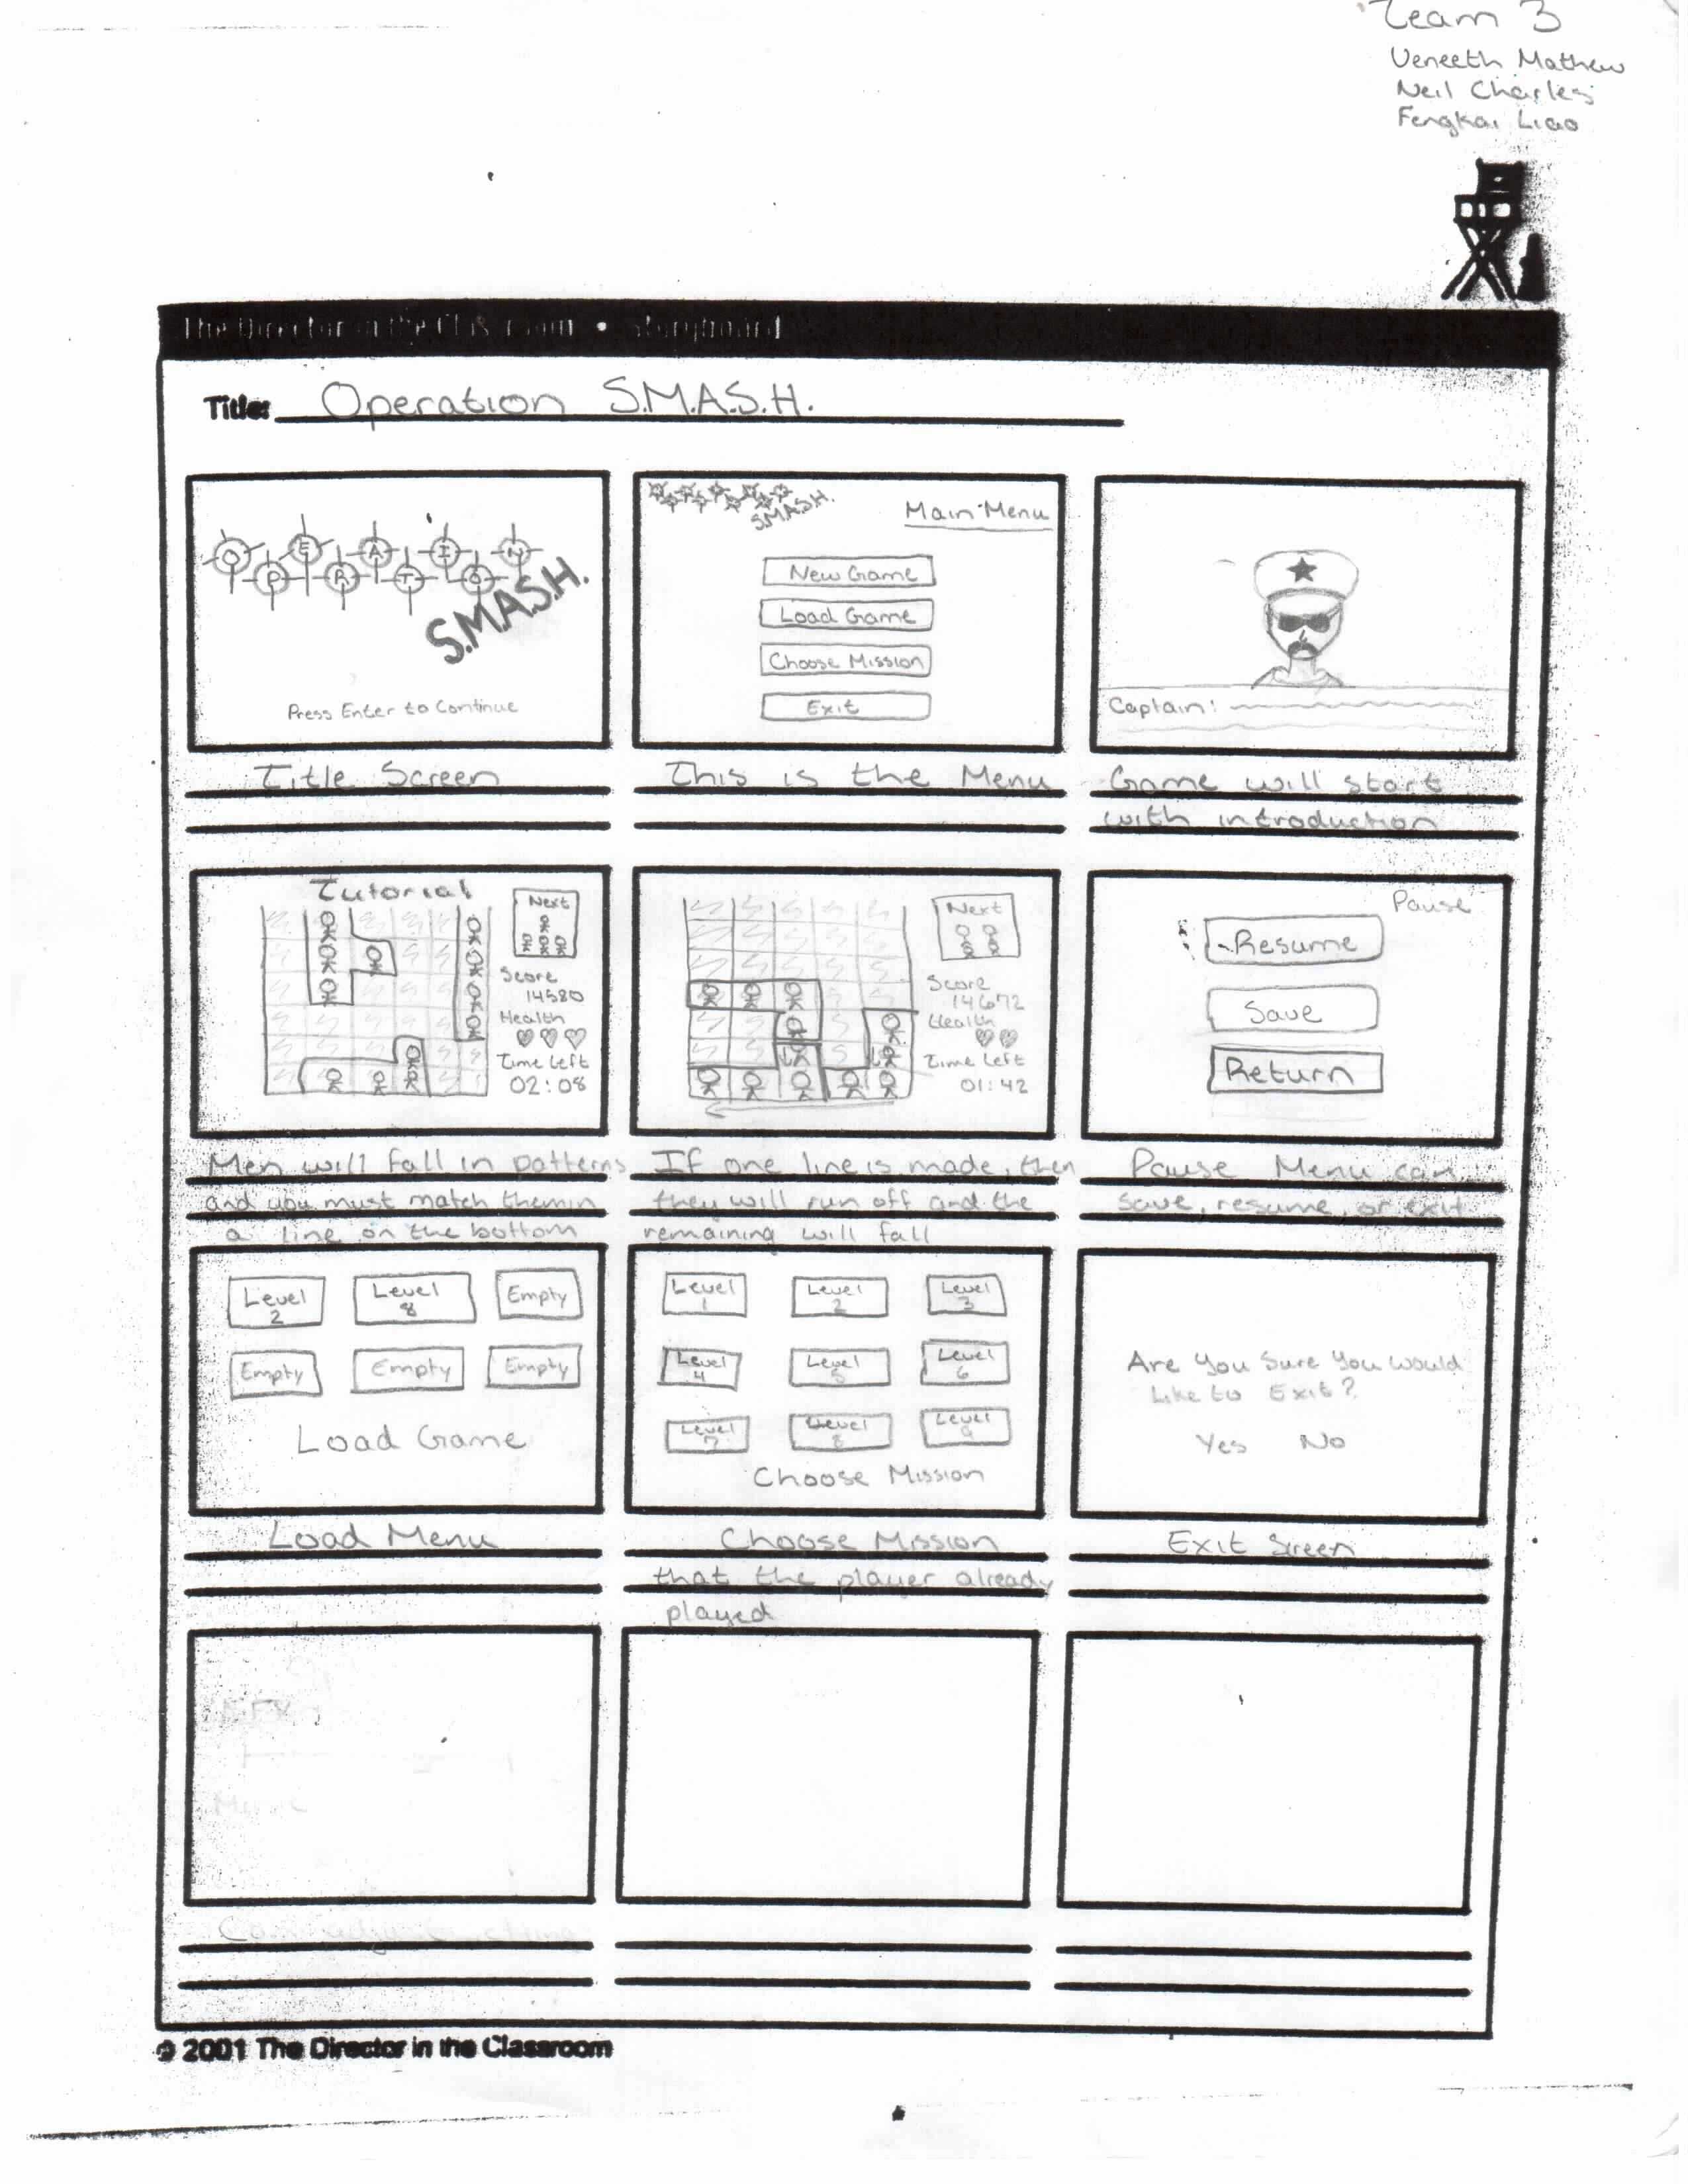 Team 3
Veneeth Mathew
Neil Charles
Fengkai Liao
The Director in the Classroom • Storyboard
Title: Operation S.M.A.S.H.
OPERATION
S.M.A.S.H.
Press Enter to Continue
Title Screen
S.M.A.S.H.
Main Menu
New Game
Load Game
Choose Mission
Exit
This is the Menu
Captain:
Game will start
with introduction
Tutorial
Next
Score
14580
Health
Time Left
02:08
Men will fall in patterns
and you must match them in
a line on the bottom
Next
Score
14672
Health
Time Left
01:42
If one line is made, then
they will run off and the
remaining will fall
Pause
Resume
Save
Return
Pause Menu can
save, resume, or exit
Level 2
Level 8
Empty
Empty
Empty
Empty
Load Game
Load Menu
Level 1
Level 2
Level 3
Level 4
Level 5
Level 6
Level 7
Level 8
Level 9
Choose Mission
Choose Mission
that the player already
played
Are You Sure You Would
Like to Exit?
Yes No
Exit Screen
© 2001 The Director in the Classroom